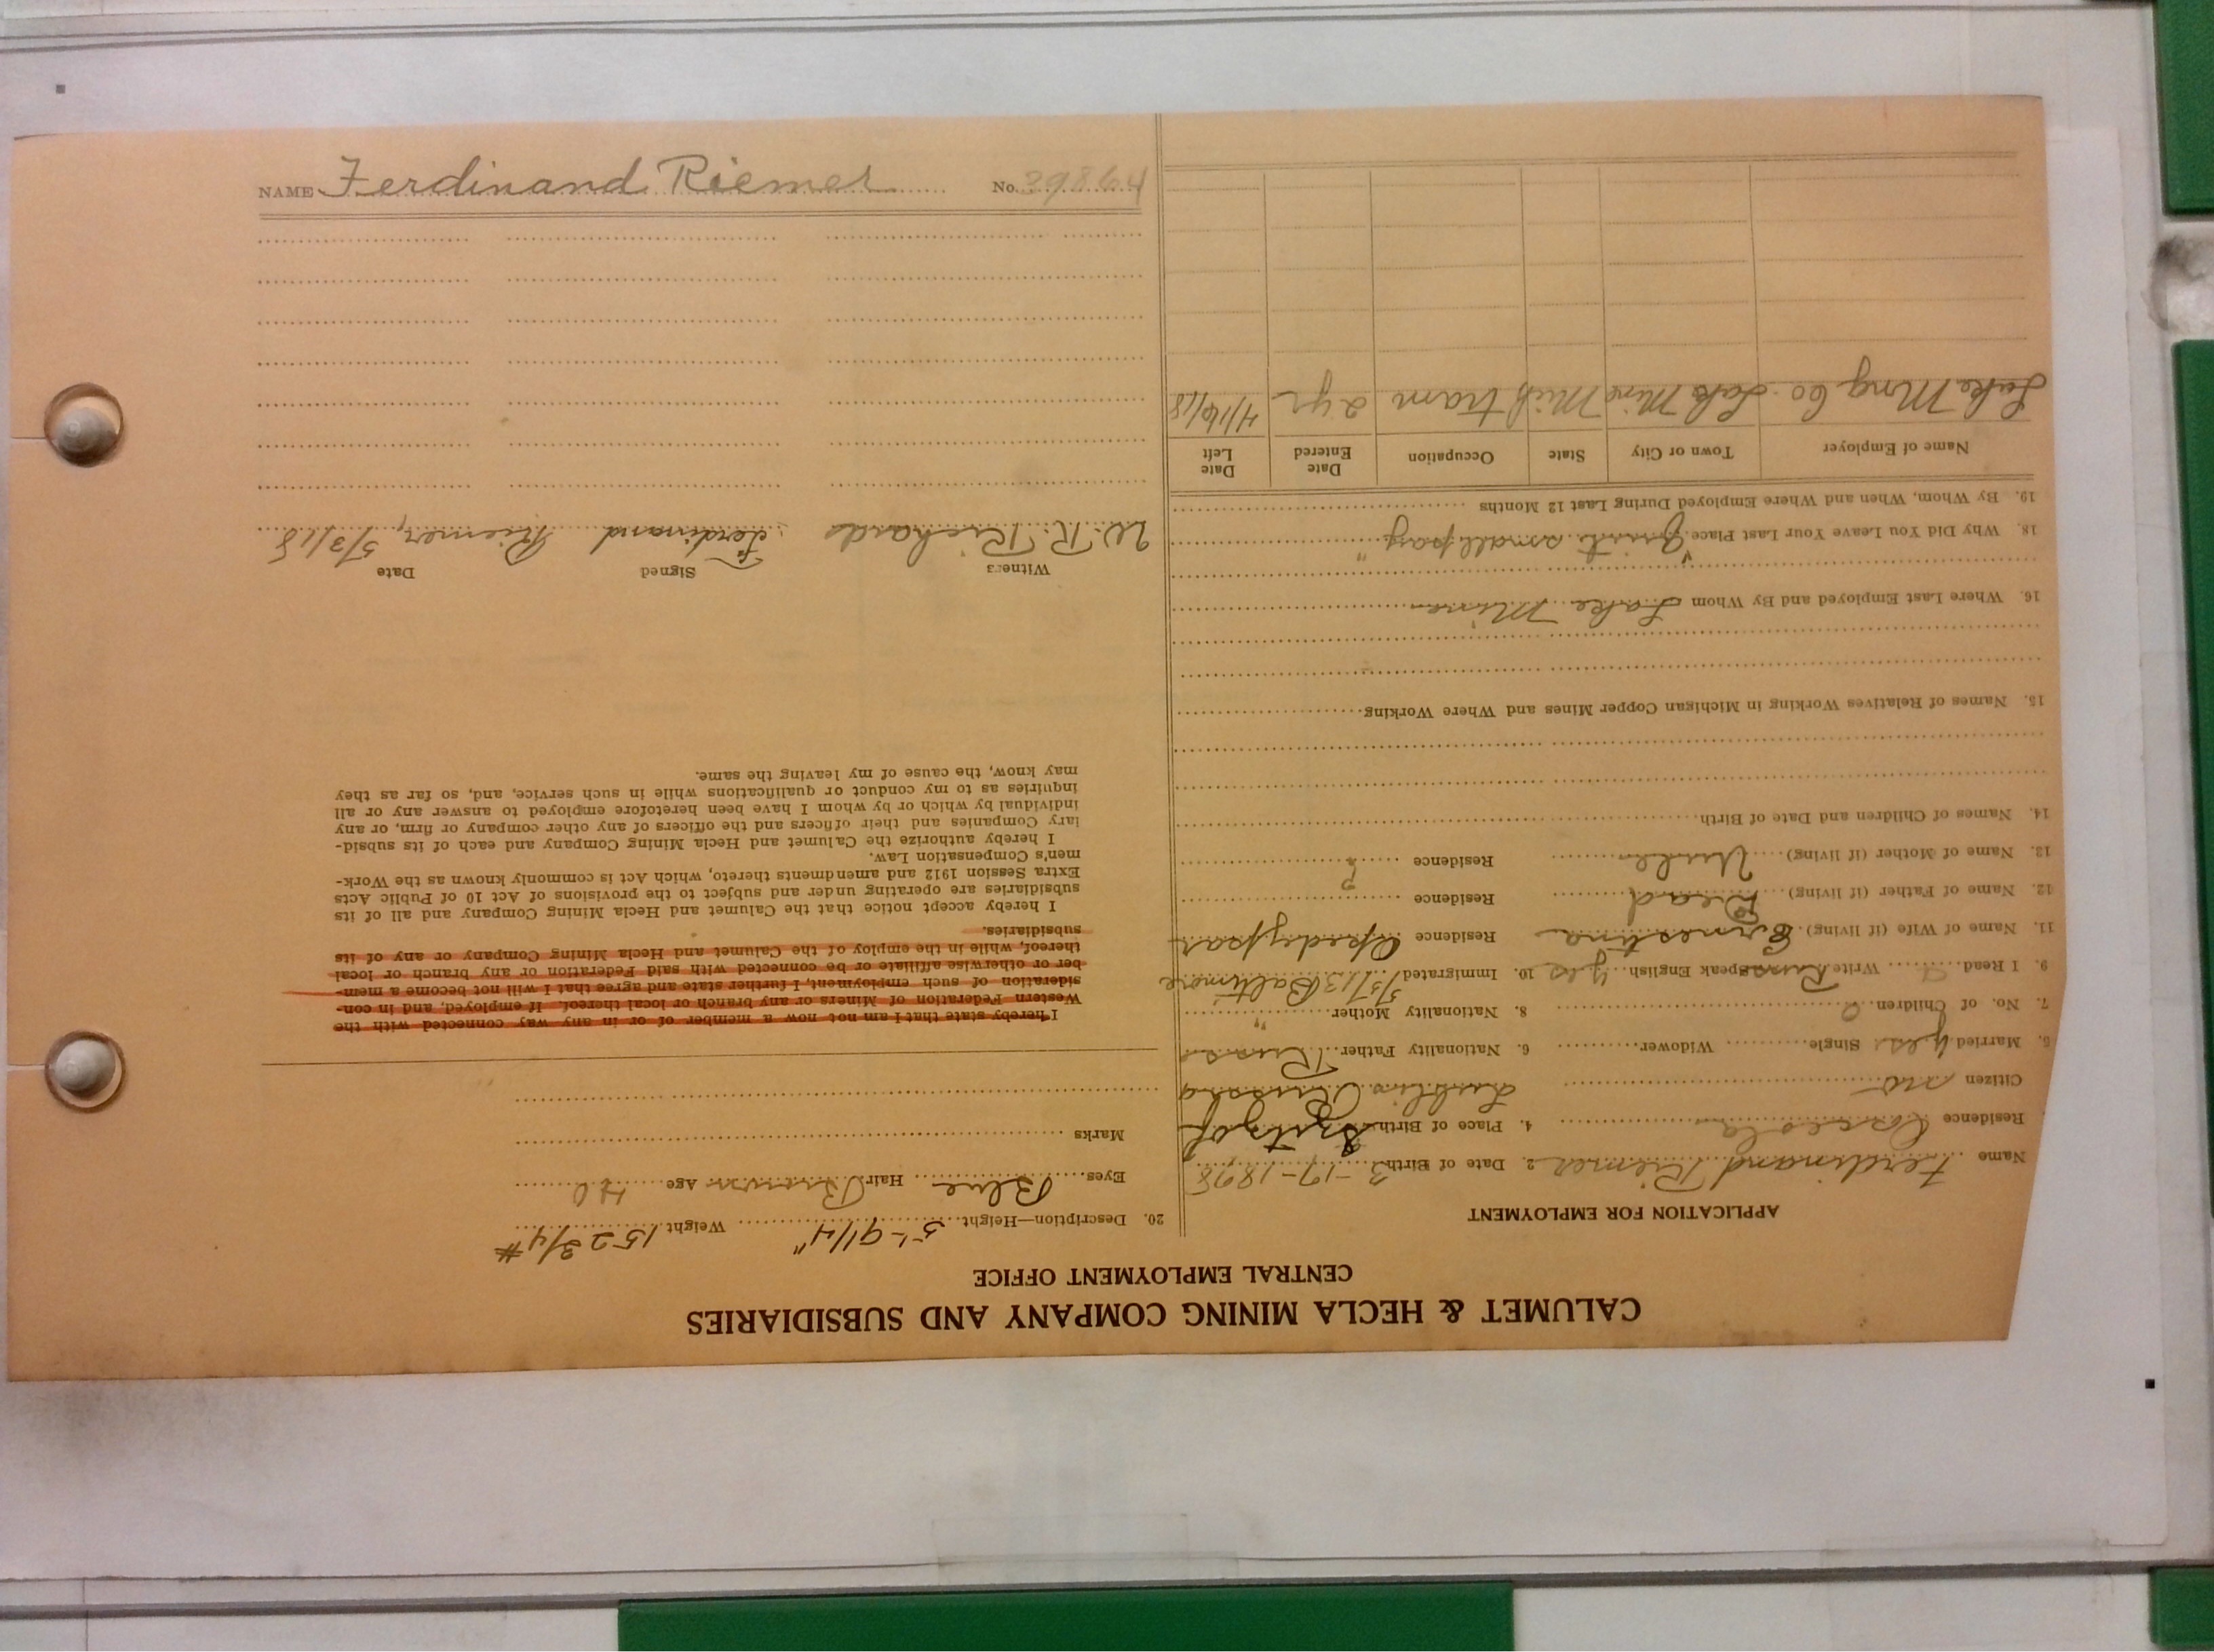 NAME Ferdinand Riemer No. 39864
CALUMET & HECLA MINING COMPANY AND SUBSIDIARIES
CENTRAL EMPLOYMENT OFFICE
APPLICATION FOR EMPLOYMENT
Name Ferdinand Riemer 2. Date of Birth 3-17-1878
Residence Osceola 4. Place of Birth
Citizen no Lublin Russia
5. Married yes Single Widower 6. Nationality Father Russ
7. No. of Children 0 8. Nationality Mother "
9. I Read Write Russ Speak English yes 10. Immigrated 5/5/13 Baltimore
11. Name of Wife (if living) Ernestina Residence
12. Name of Father (if living) Dead Residence ?
13. Name of Mother (if living) Residence ?
14. Names of Children and Date of Birth
15. Names of Relatives Working in Michigan Copper Mines and Where Working
16. Where Last Employed and By Whom Lake Mine
18. Why Did You Leave Your Last Place "Quit small pay"
19. By Whom, When and Where Employed During Last 12 Months
Name of Employer Town or City State Occupation Date Entered Date Left
Lake Mng Co. Lake Mine Mich tram 2 yr 4/16/18
20. Description—Height 5'-9 1/4" Weight 152 3/4 #
Eyes Blue Hair Brown Age 40
Marks
I hereby state that I am not now a member of or in any way connected with the
Western Federation of Miners or any branch or local thereof. If employed, and in con-
sideration of such employment, I further state and agree that I will not become a mem-
ber or otherwise affiliate or be connected with said Federation or any branch or local
thereof, while in the employ of the Calumet and Hecla Mining Company or any of its
subsidiaries.
I hereby accept notice that the Calumet and Hecla Mining Company and all of its
subsidiaries are operating under and subject to the provisions of Act 10 of Public Acts
Extra Session 1912 and amendments thereto, which Act is commonly known as the Work-
men's Compensation Law.
I hereby authorize the Calumet and Hecla Mining Company and each of its subsid-
iary Companies and their officers and the officers of any other company or firm, or any
individual by which or by whom I have been heretofore employed to answer any or all
inquiries as to my conduct or qualifications while in such service, and, so far as they
may know, the cause of my leaving the same.
Witness Signed Date
W. R. Richards Ferdinand Riemer, 5/3/18